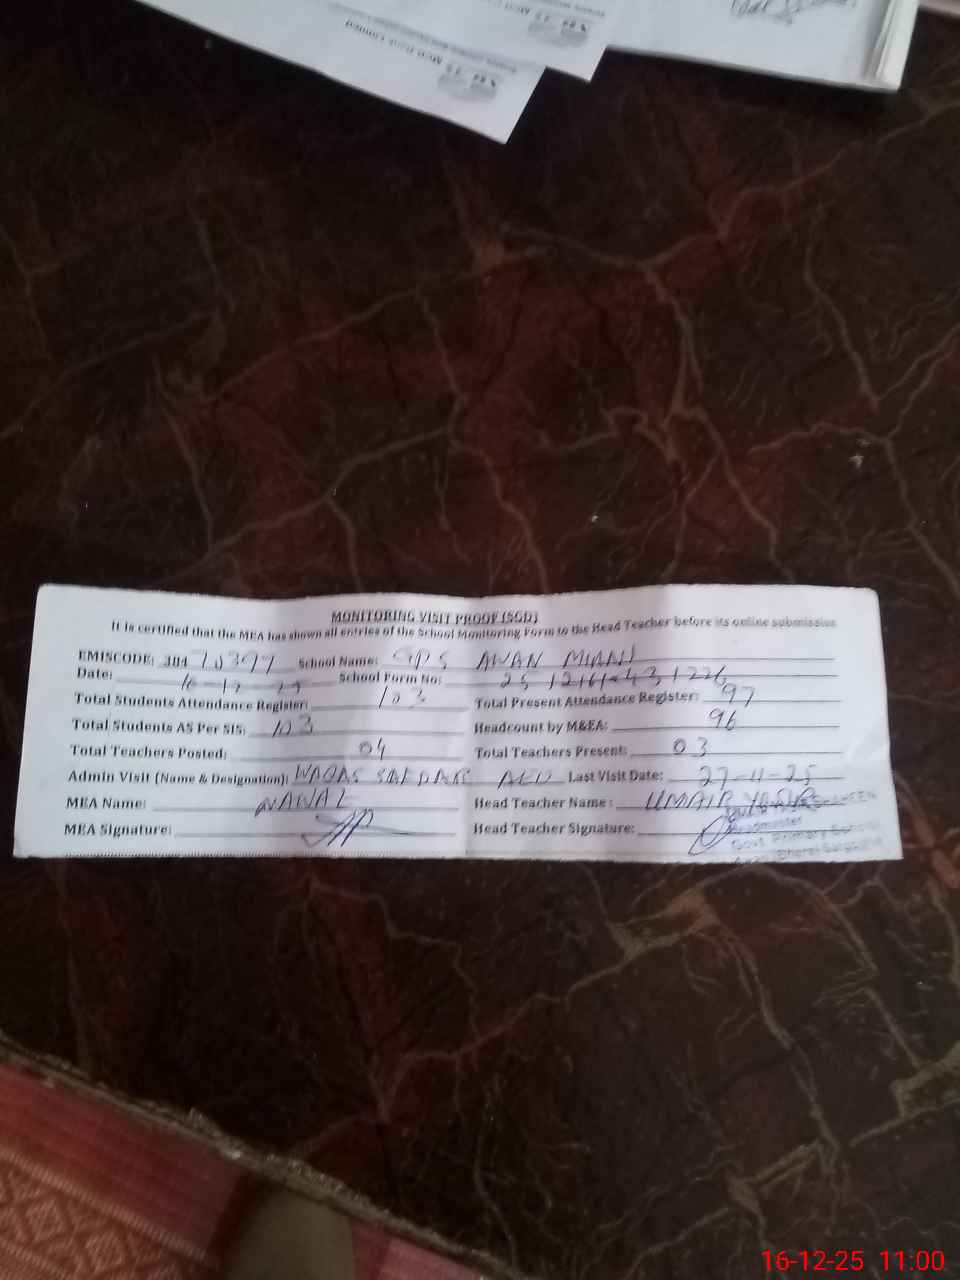 MONITORING VISIT PROOF (SGD)
It is certified that the MEA has shown all entries of the School Monitoring Form to the Head Teacher before its online submission
EMISCODE: 38470397 School Name: GPS AWAN MIANI
Date: 16-12-25 School Form No:
Total Students Attendance Register: 103 Total Present Attendance Register: 97
Total Students AS Per SIS: 103 Headcount by M&EA: 96
Total Teachers Posted: 04 Total Teachers Present: 03
Admin Visit (Name & Designation): WAQAS SAFDAR AEO Last Visit Date: 27-11-25
MEA Name: NAWAZ Head Teacher Name: UMAIR YASIR
SHAHEEN
MEA Signature: Head Teacher Signature:
Headmaster
Govt. Primary School
16-12-25 11:00